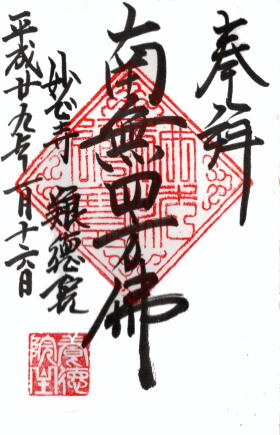 奉拝
南無四方佛
妙心寺 養徳院
平成廿九年一月十六日
養徳院印